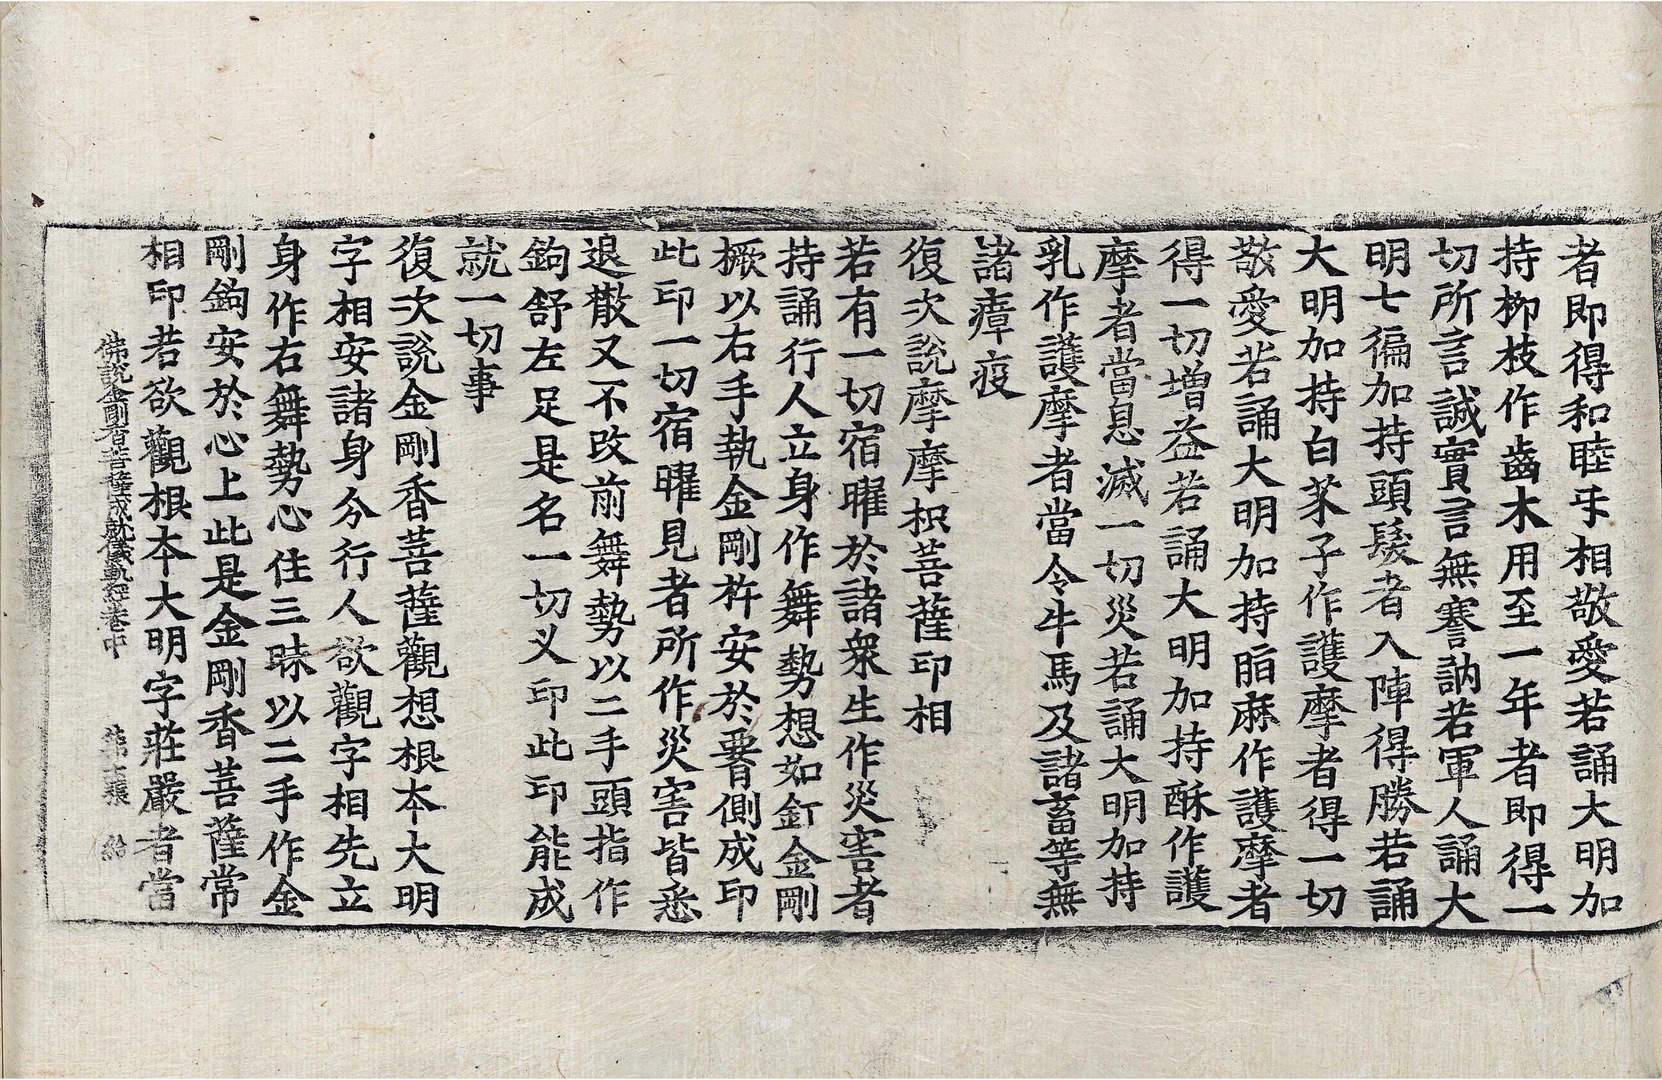 者即得和睦乎相敬愛若誦大明加
持柳枝作齒木用至一年者即得一
切所言誠實言無謇訥若軍人誦大
明七徧加持頭髮者入陣得勝若誦
大明加持白芥子作護摩者得一切
敬愛若誦大明加持脂麻作護摩者
得一切增益若誦大明加持酥作護
摩者當息滅一切災若誦大明加持
乳作護摩者當令牛馬及諸畜等無
諸瘴疫
復次說摩摩枳菩薩印相
若有一切宿曜於諸衆生作災害者
持誦行人立身作舞勢想如釘金剛
橛以右手執金剛杵安於署側成印
此印一切宿曜見者所作災害皆悉
退散又不改前舞勢以二手頭指作
鉤舒左足是名一切义印此印能成
就一切事
復次說金剛香菩薩觀想根本大明
字相安諸身分行人欲觀字相先立
身作右舞勢心住三昧以二手作金
剛鉤安於心上此是金剛香菩薩常
相印若欲觀根本大明字莊嚴者當
佛說金剛香菩薩成就儀軌經卷中 張 給